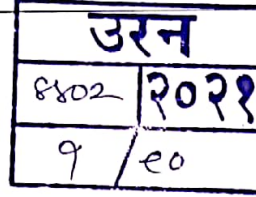 उरन
४४०२ २०२१
१/९०